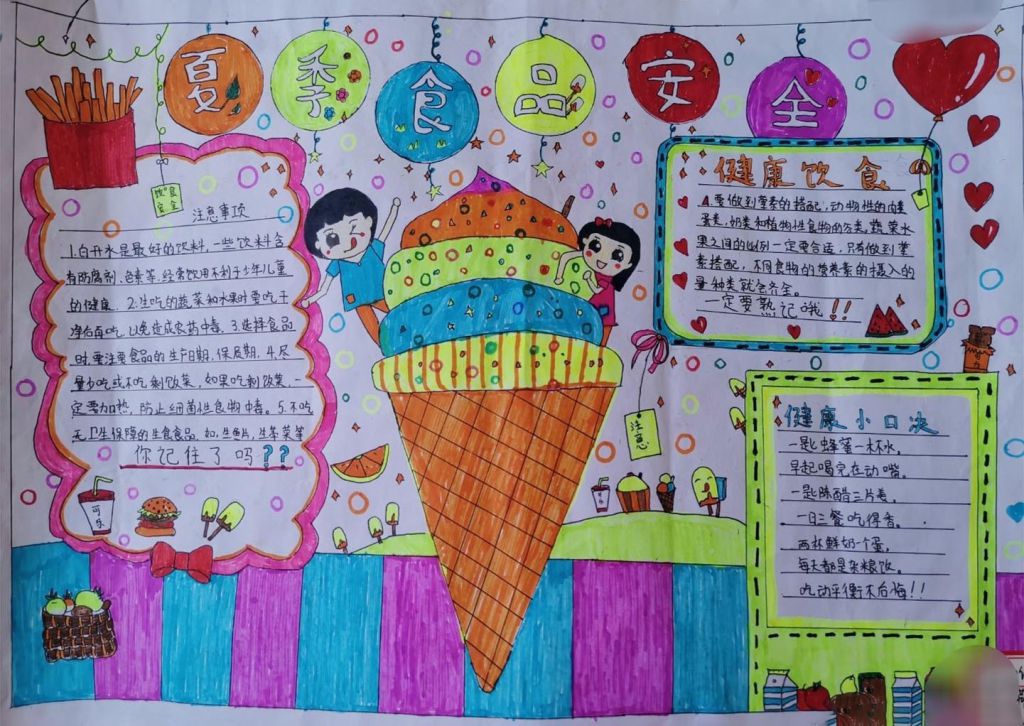 夏季食品安全
饮食
安全
注意事项
1.白开水是最好的饮料,一些饮料含
有防腐剂、色素等,经常饮用不利于少年儿童
的健康. 2.生吃的蔬菜和水果时要吃干
净后再吃,以免造成农药中毒. 3.选择食品
时,要注意食品的生产日期、保质期. 4.尽
量少吃或不吃剩饭菜,如果吃剩饭菜,一
定要加热,防止细菌性食物中毒。5.不吃
无卫生保障的生食食品.如,生鱼片,生茶菜等
你记住了吗??
可乐
健康饮食
要做到营素的搭配,动物性的肉类
蛋类,奶类和植物性食物的豆类,蔬菜水
果之间的比列一定要合适,只有做到荤
素搭配,不同食物的营养素的摄入的
量种类就会齐全。
一定要熟记哦!!
注意
健康小口决
一匙蜂蜜一杯水,
早起喝完在动嘴。
一匙陈醋三片姜,
一日三餐吃得香。
两杯鲜奶一个蛋,
每天都是杂粮饭。
吃动平衡不后悔!!